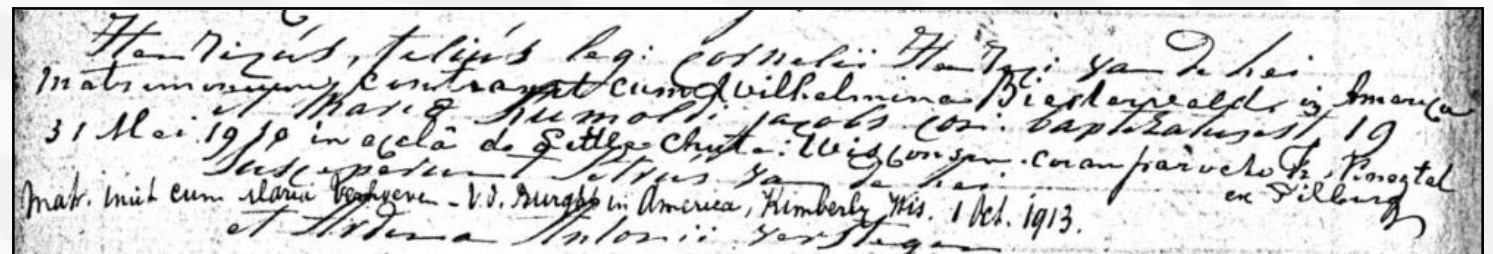 Henricus, filius leg: Cornelii Henrici van de hei
Matrimonium contraxit cum Wilhelmina Biesterveld in America
et Maria Rumoldi Jacobs coni. baptizatus est 19
31 Mei 1910 in de Little Chute Wisconsin coram parocho
Susceperunt Petrus van de hei ex Tilburg
Matr. iniit cum Maria - v.d. Burght in America, Kimberly Wis. 1 Oct. 1913.
et Ardina Antonii Verstegen